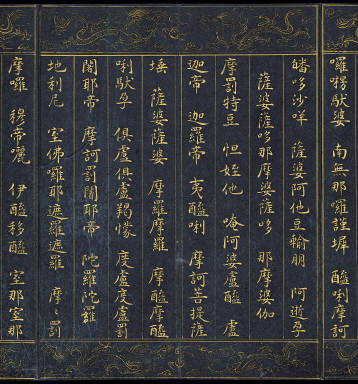 囉楞馱婆　南無那囉謹墀　醯唎摩訶
皤哆沙咩　薩婆阿他豆輸朋　阿逝孕
薩婆薩哆那摩婆薩哆　那摩婆伽
摩罰特豆　怛姪他　唵阿婆盧醯　盧
迦帝　迦羅帝　夷醯唎　摩訶菩提薩
埵　薩婆薩婆　摩羅摩羅　摩醯摩醯
唎馱孕　俱盧俱盧羯懞　度盧度盧罰
闍耶帝　摩訶罰闍耶帝　陀羅陀羅
地利尼　室佛囉耶遮羅遮羅　摩〻罰
摩囉　穆帝囇　伊醯移醯　室那室那